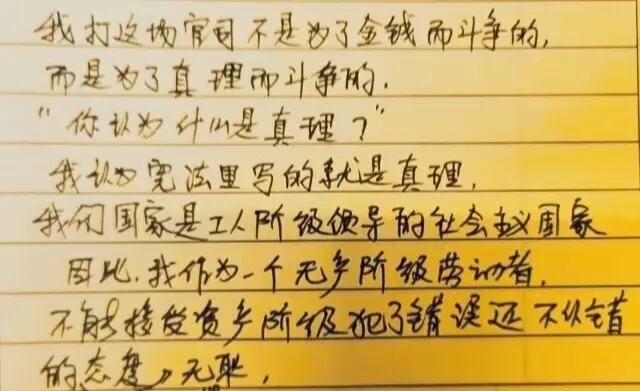 我打这场官司不是为了金钱而斗争的,
而是为了真理而斗争的.
"你认为什么是真理?"
我认为宪法里写的就是真理,
我们国家是工人阶级领导的社会主义国家
因此.我作为一个无产阶级劳动者,
不能接受资产阶级犯了错误还不认错
的态度,无耻,